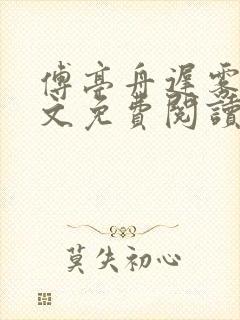 傅亭舟遲霧
文免費閱讀
莫失初心